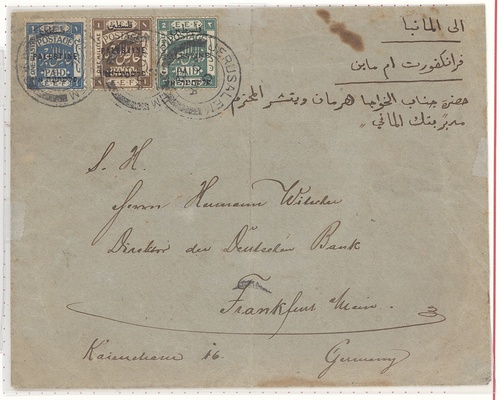 PALESTINE
PALESTINE
PALESTINE
E.E.F.
E.E.F.
E.E.F.
POSTAGE
POSTAGE
POSTAGE
PAID
PAID
PAID
JERUSALEM
الى المانيا
فرانكفورت ام ماين
حضرة جناب الخواجا هرمان ويتشر المحترم
مدير بنك الماني
S. H.
Herrn Hermann Witscher
Direktor der Deutschen Bank
Frankfurt a/Main.
16.
Germany